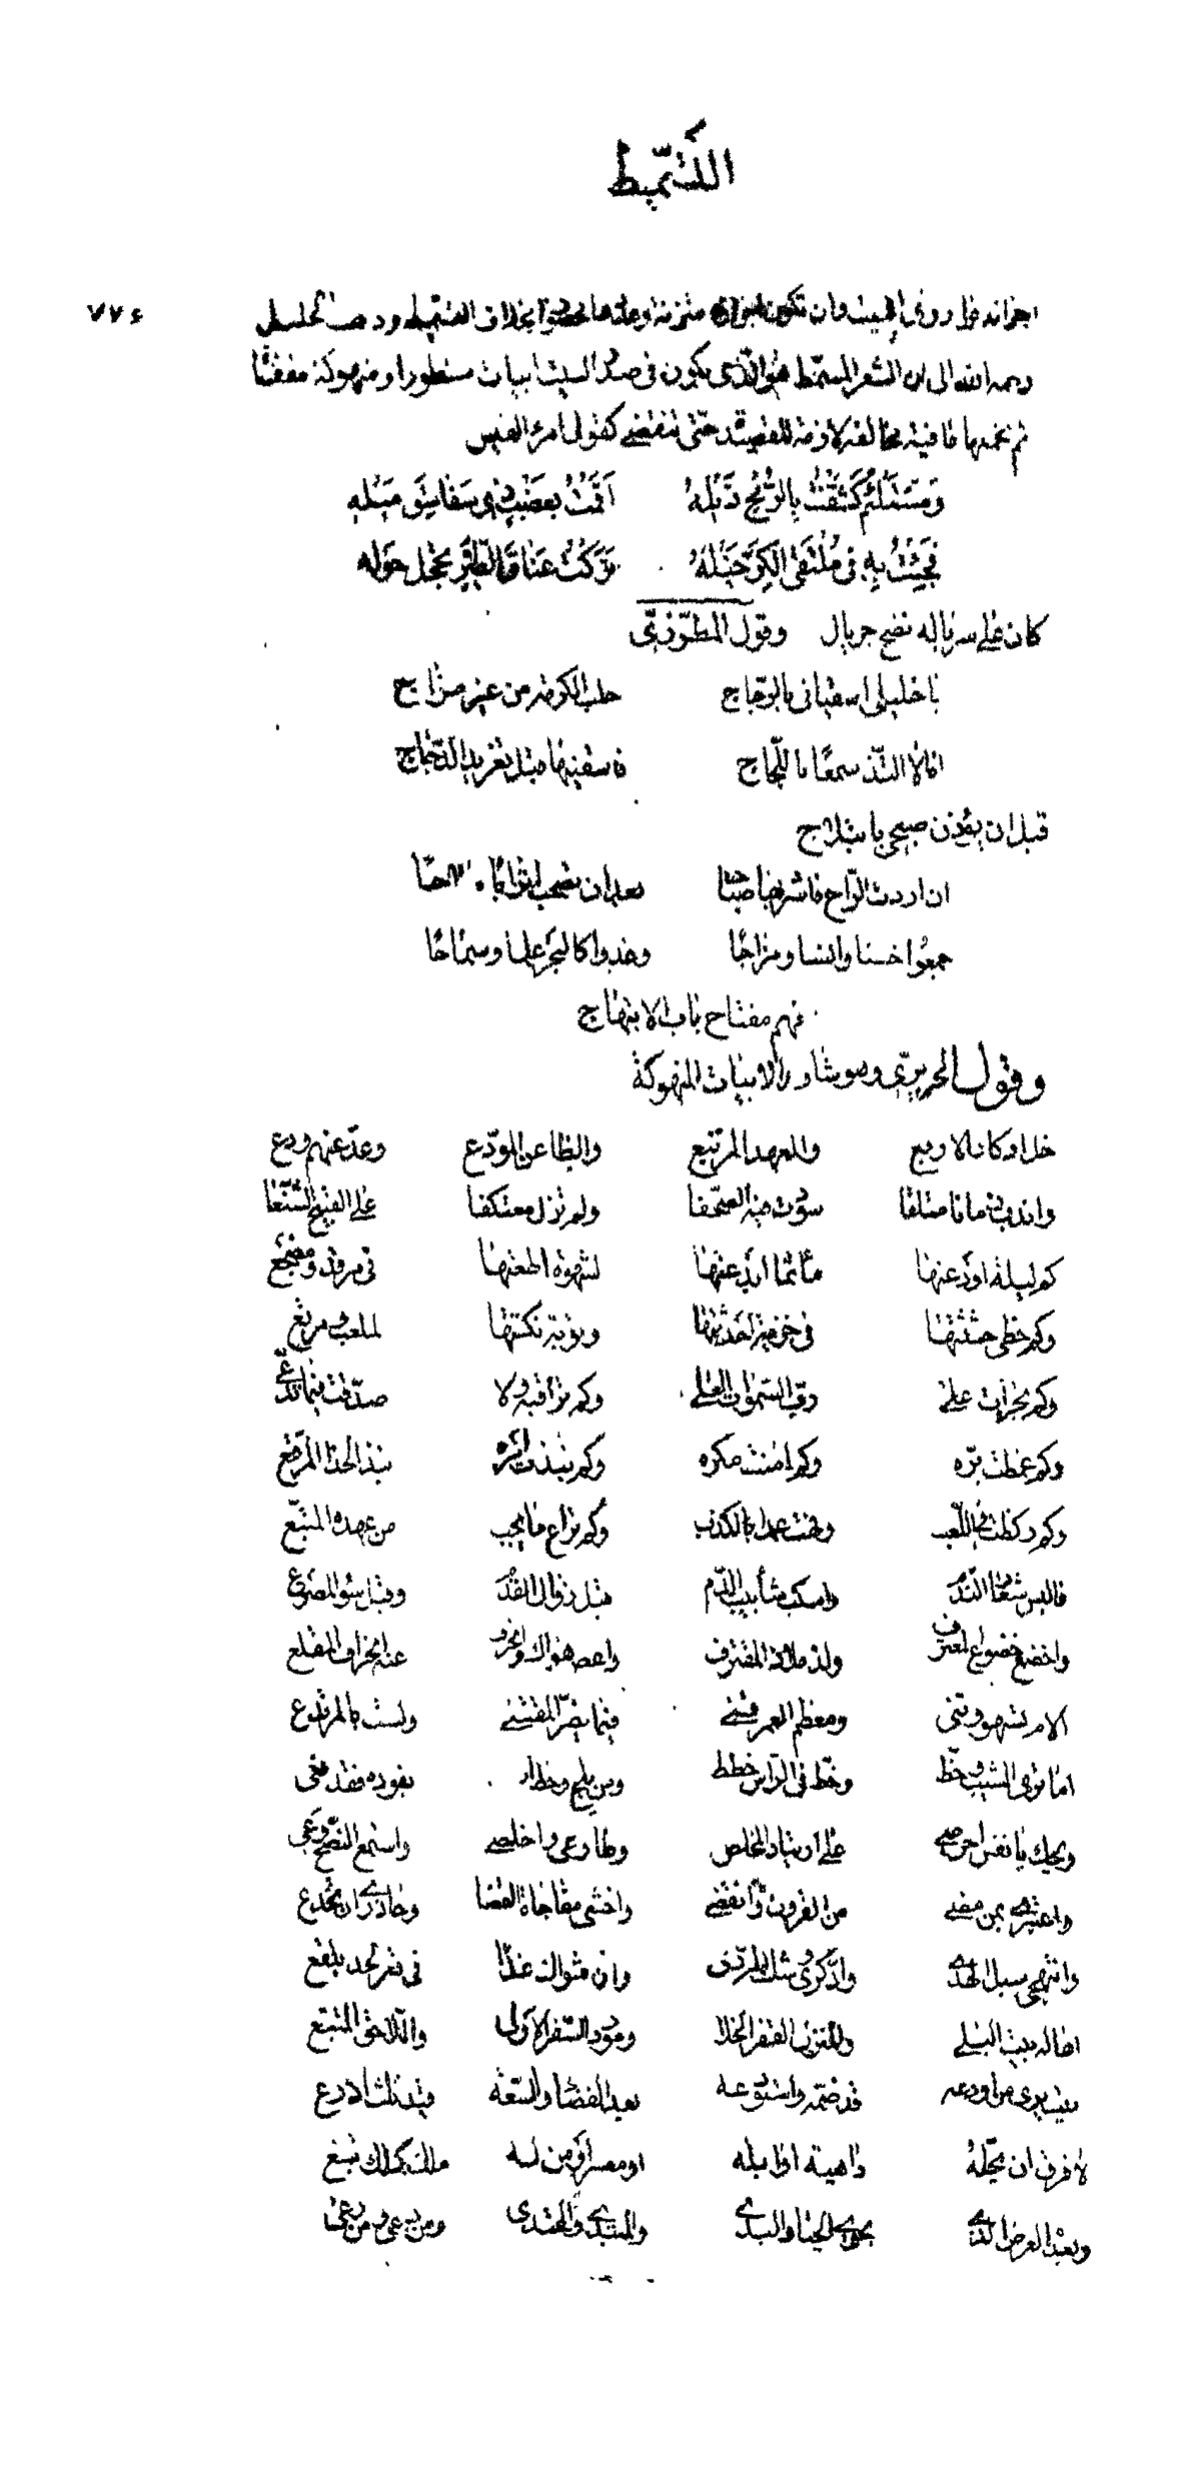 التسميط
٧٧٤
اجزائه على روى البيت وان تكون متزنة بخلاف التسميط وذهب الخليل
رحمه الله الى ان الشعر المسمط هو الذى يكون فى صدر البيت ابيات مشطورة او منهوكة مقفاة
ثم يجمعها قافية مخالفة لازمة للقصيدة حتى تنقضى كقول امرئ القيس
وَمُسْتَلْئِمٍ كَشَّفْتُ بِالرُّمْحِ ذَيْلَهُ اَقَمْتُ بِعَضْبٍ ذِى سَفَاسِقَ مَيْلَهُ
فَجِئْتُ بِهِ فى مُلْتَقَى الكَرِّ خَيْلَهُ تَرَكْتُ عِتَاقَ الطَّيْرِ تحجل حَوْلَه
كان على سرباله نضح جريال وقول المطرّزىّ
يا خليلى اسقيانى بالزجاج حلب الكرمة من غير مزاج
انا لا التذ سمعا باللجاج فاسقنيها قبل تغريد الدجاج
قبل ان يؤذن صبحى بابتلاج
ان اردت الراح فاشربها صباحا بعد ان تصحب اترابا
جمعوا حسنا وانسا ومزاحا وغدوا كالبحر علما وسماحا
فهم مفتاح باب الابتهاج
وقول الحريرىّ وهو شاهد الابيات المنهوكة
خل ادكار الاربع والمعهد المرتبع والظاعن المودّع وعدّ عنهم ودع
واندب زمانا سلفا سوّدت فيه الصحفا ولم تزل معتكفا على القبيح الشنعا
كم ليلة اودعتها مآثما ابدعتها لشهوة اطعتها فى مرقد ومضجع
وكم خطى حثثتها فى خزية احدثتها وتوبة نكثتها لملعب ومرتع
وكم تجرات على رب السموات العلى وكم تراقبه ولا صدقت فيما تدعى
وكم غمطت بره وكم امنت مكره وكم نبذت امره نبذ الحذا المرقع
وكم ركضت فى اللعب وفهت عمدا بالكذب ولم تراع ما يجب من عهده المتبع
فالبس شعار الندم واسكب شآبيب الدم قبل زوال القدم وقبل سوء المصرع
واخضع خضوع المعترف ولذ ملاذ المقترف واعص هواك وانحرف عنه انحراف المقلع
الام تسهو وتنى ومعظم العمر فنى فيما يضرّ المقتنى ولست بالمرتدع
اما ترى الشيب وخط وخط فى الراس خطط ومن يلح وخط بفوده فقد نعى
ويحك يا نفس احرصى على ارتياد المخلص وطاوعى واخلصى واستمع النصح وعى
واعتبرى بمن مضى من القرون وانقضى واخشى مفاجاة القضا وحاذرى ان تخدعى
وانتهجى سبل الهدى وادّكرى وشك الردى وان مثواك غدا فى قعر لحد بلقع
اها له بيت البلى والمنزل القفر الخلا ومورد السفر الاولى واللاحق المتبع
بيت يرى من اودعه قد ضمه واستودعه بعد الفضا والسعة قيد ثلث اذرع
لا فرق ان يحله داهية او ابله او معسر او من له ملك كملك تبع
وبعده العرض الذى يحوى الحيى والبذى والمبتدى والمحتذى ومن رعى ومن رعى